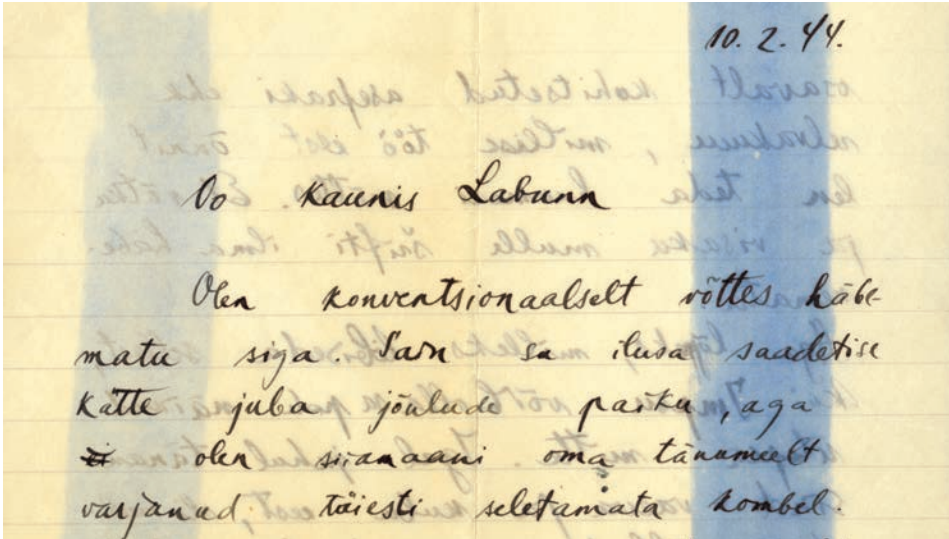 10. 2. 44.
Oo kaunis Labunn
Olen konventsionaalselt võttes häbe-
matu siga. Sain sa ilusa saadetise
kätte juba jõulude paiku, aga
olen siiamaani oma tänumeelt
varjanud täiesti seletamata kombel.